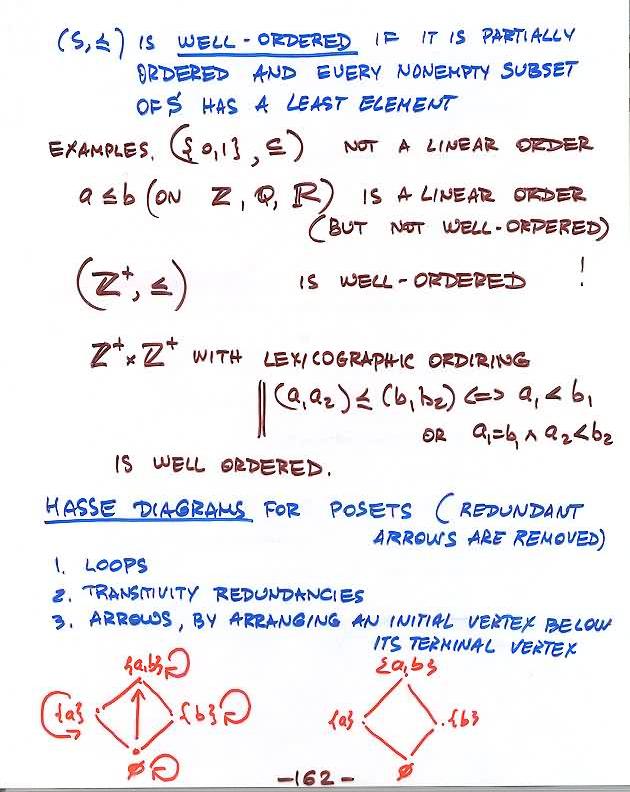 (S, ≤) IS WELL-ORDERED IF IT IS PARTIALLY
ORDERED AND EVERY NONEMPTY SUBSET
OF S HAS A LEAST ELEMENT
EXAMPLES. ({0,1}, ⊆) NOT A LINEAR ORDER
a ≤ b (ON ℤ, ℚ, ℝ) IS A LINEAR ORDER
(BUT NOT WELL-ORDERED)
(ℤ⁺, ≤) IS WELL-ORDERED !
ℤ⁺ × ℤ⁺ WITH LEXICOGRAPHIC ORDIRING
‖ (a₁a₂) ≤ (b₁b₂) <=> a₁ < b₁
OR a₁=b₁ ∧ a₂<b₂
IS WELL ORDERED.
HASSE DIAGRAMS FOR POSETS (REDUNDANT
ARROWS ARE REMOVED)
1. LOOPS
2. TRANSITIVITY REDUNDANCIES
3. ARROWS, BY ARRANGING AN INITIAL VERTEX BELOW
ITS TERMINAL VERTEX
{a,b} {a,b}
{a} {b} {a} {b}
∅ ∅
-162-